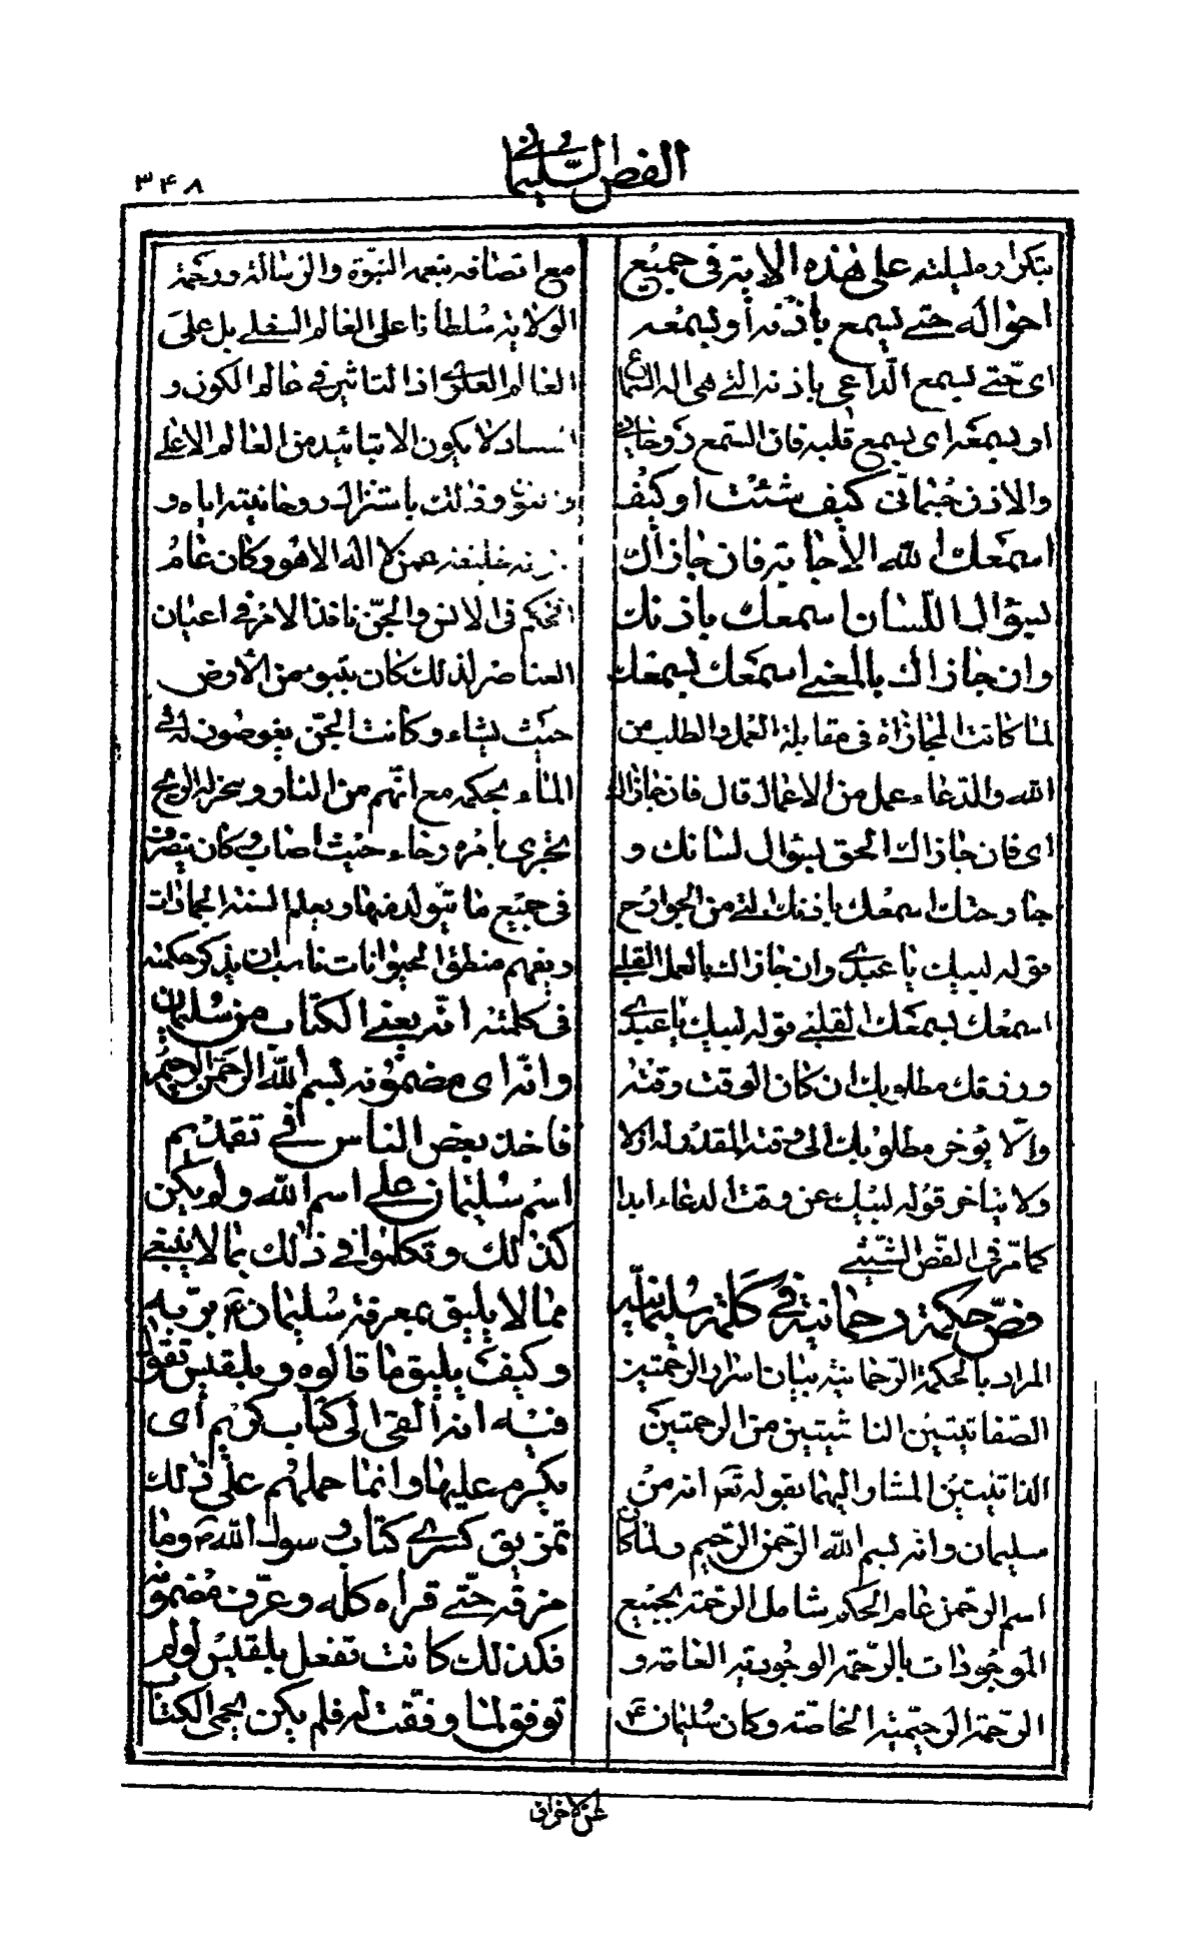 الفص السليمانى
۳۴۸
بتكراره ليلته على هذه الاية فى جميع
احواله حتى يسمع باذنه او بسمعه
اى حتى يسمع الداعى باذنه التى هى اله السماع
او بسمعه اى بسمع قلبه فان السمع روحانى
والاذن جسمانى كيف شئت او كيف
اسمعك الله الاجابة فان جازاك
بسؤال اللسان اسمعك باذنك
وان جازاك بالمعنى اسمعك بسمعك
لما كانت المجازاة فى مقابلة العمل والطلب من
الله والدعاء عمل من الاعمال قال فان جازاك
اى فان جازاك الحق بسؤال لسانك و
جارحتك اسمعك باذنك التى من الجوارح
قوله لبيك يا عبدى وان جازاك بالعمل القلبى
اسمعك بسمعك القلبى قوله لبيك يا عبدى
ورزقك مطلوبك ان كان الوقت وقته
والا يؤخر مطلوبك الى وقته المقدر له ازلا
ولا يتاخر قوله لبيك عن وقت الدعاء ابدا
كما مر فى الفص الشيثى
فص حكمة رحمانية فى كلمة سليمانية
المراد بالحكمة الرحمانية بيان اسرار الرحمتين
الصفاتيتين الناشيتين من الرحمتين
الذاتيتين المشار اليهما بقوله تعم انه من
سليمان وانه بسم الله الرحمن الرحيم ولما كان
اسم الرحمن عام الحكم شامل الرحمة بجميع
الموجودات بالرحمة الوجودية العامة و
الرحمة الرحيمية الخاصة وكان سليمان ع
مع اتصافه بنعمه النبوة والرسالة ورحمة
الولاية سلطانا على العالم السفلى بل على
العالم العلوى اذ التاثير فى عالم الكون و
الفساد لا يكون الا بتائيد من العالم الاعلى
وذلك باستنزاله روحانيته اياه و
خليفته عمن لا اله الا هو وكان عام
الحكم فى الانس والجن نافذ الامر فى اعيان
العناصر لذلك كان يتبوء من الأرض
حيث يشاء وكانت الجن يغوصون له فى
الماء بحكمه مع انهم من النار وسخر له الريح
تجرى بامره رخاء حيث اصاب وكان يتصرف
فى جميع ما يتولد منها ويعلم السنة الجمادات
ويفهم منطق الحيوانات ناسب ان يذكر حكمته
فى كلمته انه يعنى الكتاب من سليمان
وانه اى مضمونه بسم الله الرحمن الرحيم
فاخذ بعض الناس فى تقديم
اسم سليمان على اسم الله ولم يكن
كذلك وتكلموا فى ذلك بما لا ينبغى
مما لا يليق بمعرفة سليمان ع بربه
وكيف يليق ما قالوه وبلقيس تقول
فيه انه القى الى كتاب كريم اى
يكرم عليها وانما حملهم على ذلك
تمزيق كسرى كتاب رسول الله ص وما
مزقه حتى قراه كله وعرف مضمونه
فكذلك كانت تفعل بلقيس لو لم
توفق لما وفقت له فلم يكن يحمى الكتاب
عن الاخراق